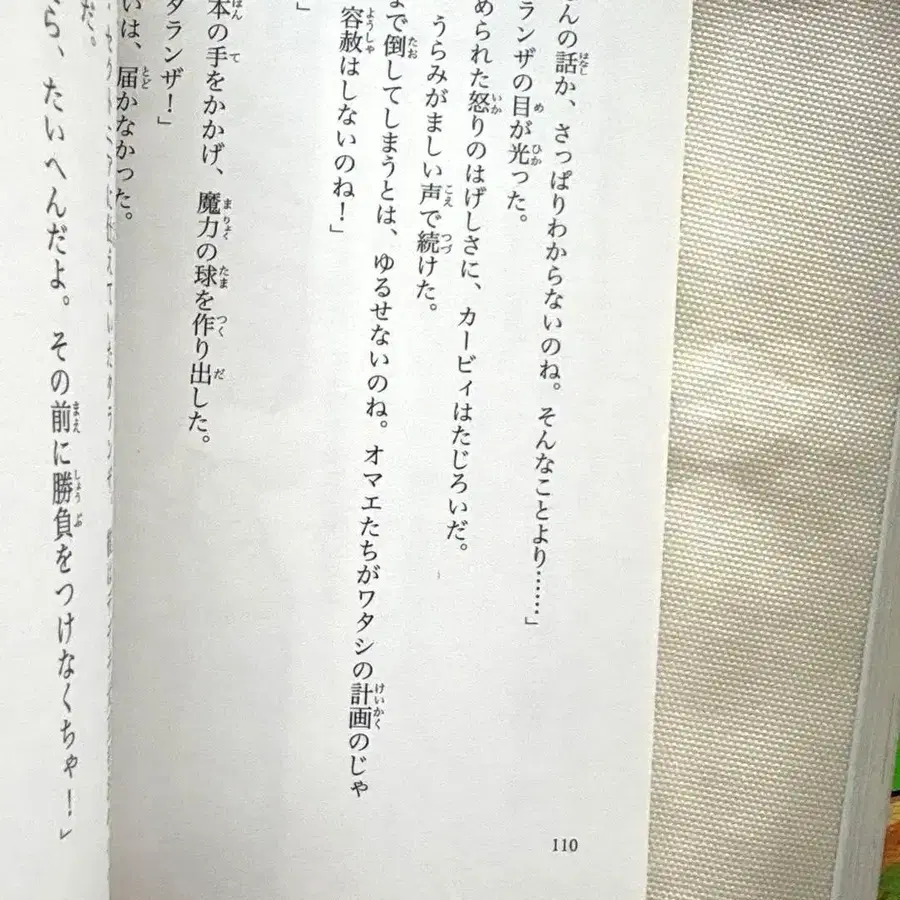 んの話か、さっぱりわからないのね。そんなことより……」
ランザの目が光った。
められた怒りのはげしさに、カービィはたじろいだ。
うらみがましい声で続けた。
まで倒してしまうとは、ゆるせないのね。オマエたちがワタシの計画のじゃ
容赦はしないのね！」
」
本の手をかかげ、魔力の球を作り出した。
タランザ！」
いは、届かなかった。
110
だ。
ら、たいへんだよ。その前に勝負をつけなくちゃ！」